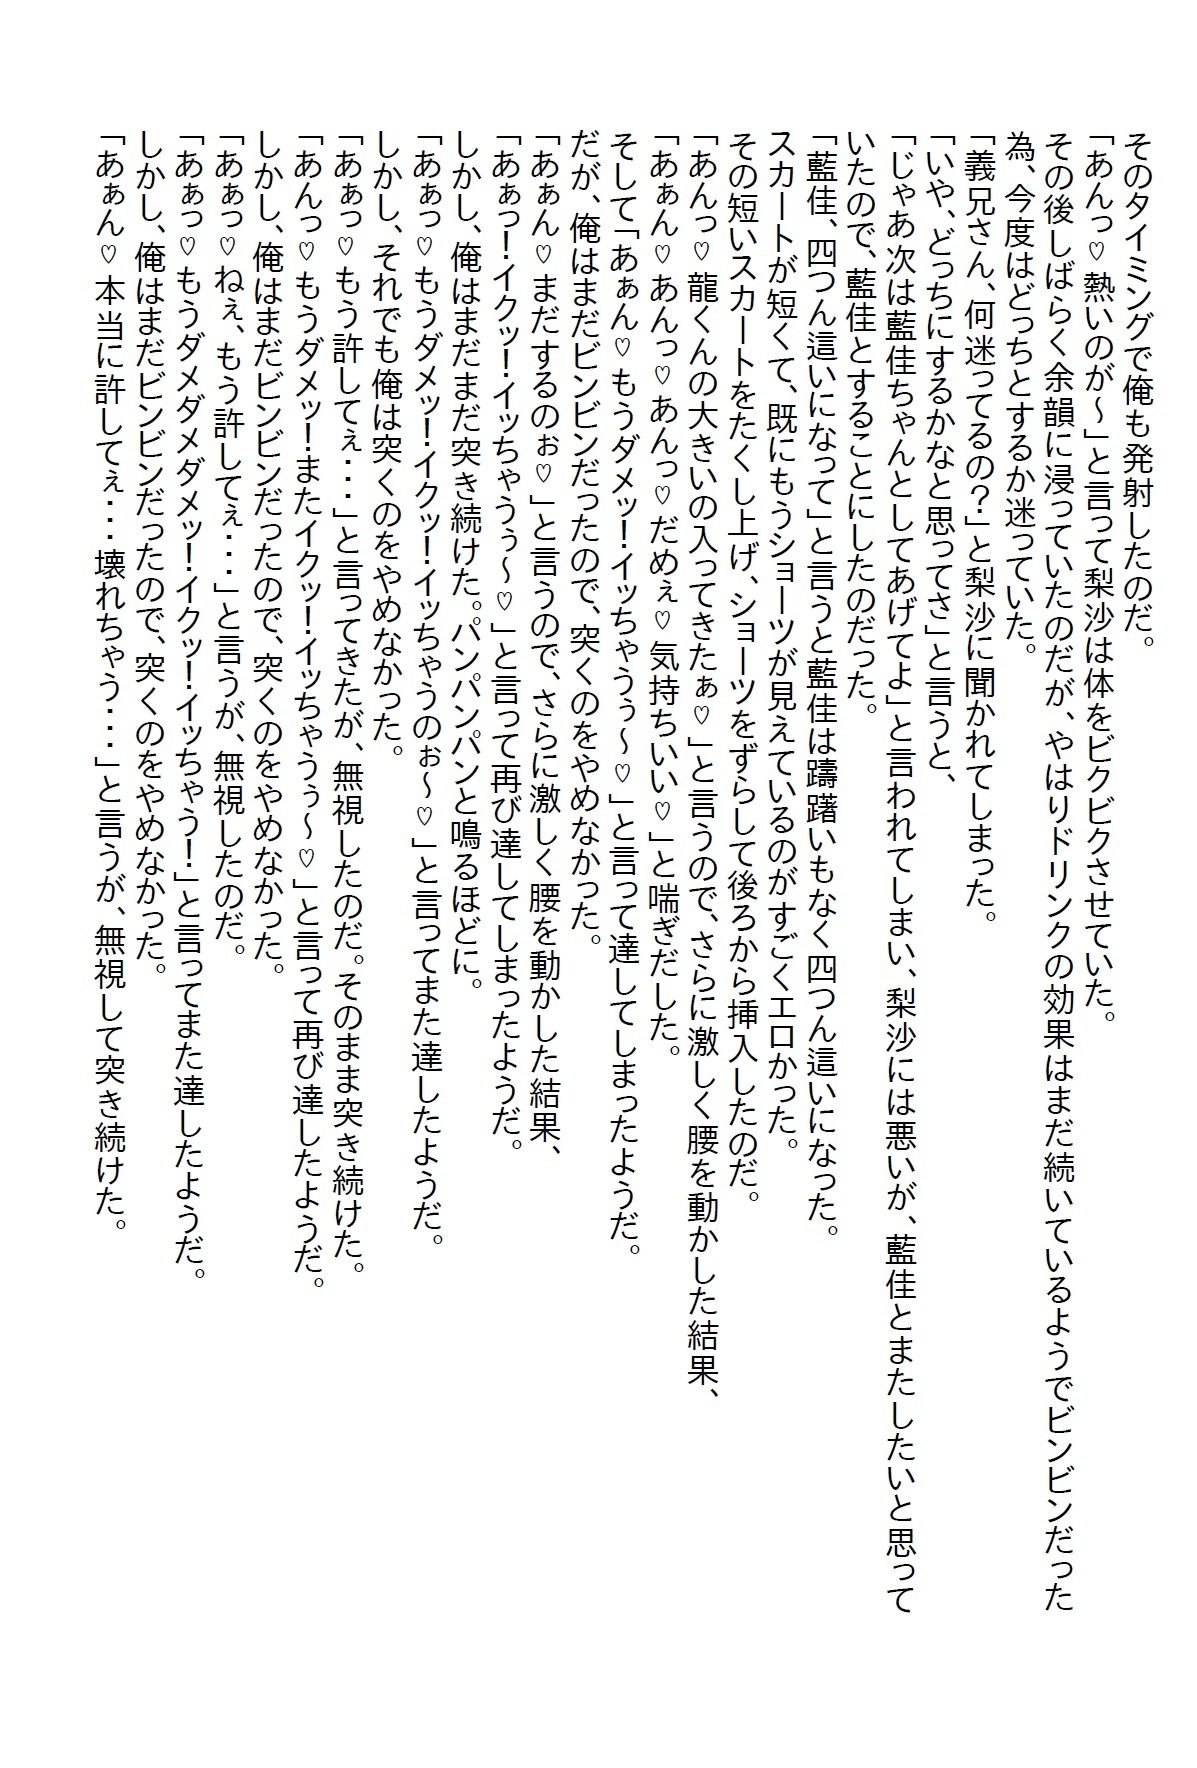 そのタイミングで俺も発射したのだ。
「あんっ♡熱いのが～」と言って梨沙は体をビクビクさせていた。
その後しばらく余韻に浸っていたのだが、やはりドリンクの効果はまだ続いているようでビンビンだった
為、今度はどっちとするか迷っていた。
「義兄さん、何迷ってるの？」と梨沙に聞かれてしまった。
「いや、どっちにするかなと思ってさ」と言うと、
「じゃあ次は藍佳ちゃんとしてあげてよ」と言われてしまい、梨沙には悪いが、藍佳とまたしたいと思って
いたので、藍佳とすることにしたのだった。
「藍佳、四つん這いになって」と言うと藍佳は躊躇いもなく四つん這いになった。
スカートが短くて、既にもうショーツが見えているのがすごくエロかった。
その短いスカートをたくし上げ、ショーツをずらして後ろから挿入したのだ。
「あんっ♡龍くんの大きいの入ってきたぁ♡」と言うので、さらに激しく腰を動かした結果、
「あぁん♡あんっ♡あんっ♡だめぇ♡気持ちいい♡」と喘ぎだした。
そして「あぁん♡もうダメッ！イッちゃうぅ～♡」と言って達してしまったようだ。
だが、俺はまだビンビンだったので、突くのをやめなかった。
「あぁん♡まだするのぉ♡」と言うので、さらに激しく腰を動かした結果、
「あぁっ！イクッ！イッちゃうぅ～♡」と言って再び達してしまったようだ。
しかし、俺はまだまだ突き続けた。パンパンパンと鳴るほどに。
「あぁっ♡もうダメッ！イクッ！イッちゃうのぉ～♡」と言ってまた達したようだ。
しかし、それでも俺は突くのをやめなかった。
「あぁっ♡もう許してぇ・・・」と言ってきたが、無視したのだ。そのまま突き続けた。
「あんっ♡もうダメッ！またイクッ！イッちゃうぅ～♡」と言って再び達したようだ。
しかし、俺はまだビンビンだったので、突くのをやめなかった。
「あぁっ♡ねぇ、もう許してぇ・・・」と言うが、無視したのだ。
「あぁっ♡もうダメダメダメッ！イクッ！イッちゃう！」と言ってまた達したようだ。
しかし、俺はまだビンビンだったので、突くのをやめなかった。
「あぁん♡本当に許してぇ・・・壊れちゃう・・・」と言うが、無視して突き続けた。